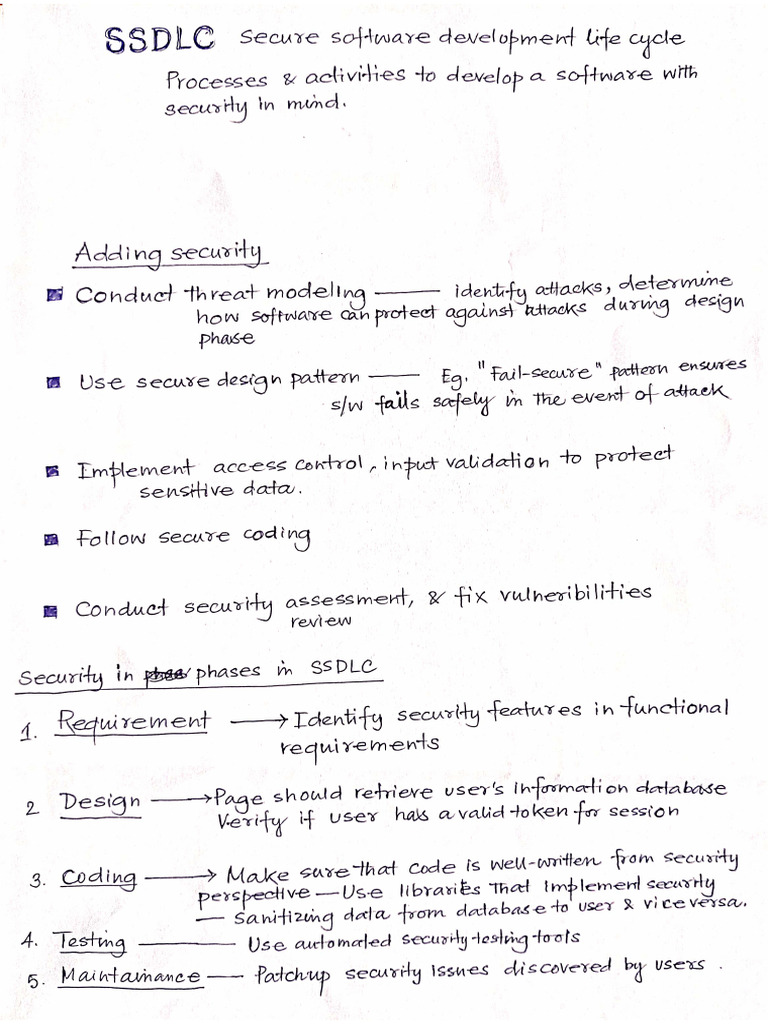 SSDLC Secure software development life cycle
Processes & activities to develop a software with
security in mind.
Adding security
Conduct threat modeling — identify attacks, determine
how software can protect against attacks during design
phase
Use secure design pattern — Eg. "Fail-secure" pattern ensures
s/w fails safely in the event of attack
Implement access control, input validation to protect
sensitive data.
Follow secure coding
Conduct security assessment, & fix vulneribilities
review
Security in phases in SSDLC
1. Requirement → Identify security features in functional
requirements
2 Design → Page should retrieve user's information database
Verify if user has a valid token for session
3. Coding → Make sure that code is well-written from security
perspective — Use libraries that implement security
— Sanitizing data from database to user & vice versa.
4. Testing — Use automated security testing tools
5. Maintainance — Patchup security issues discovered by users.